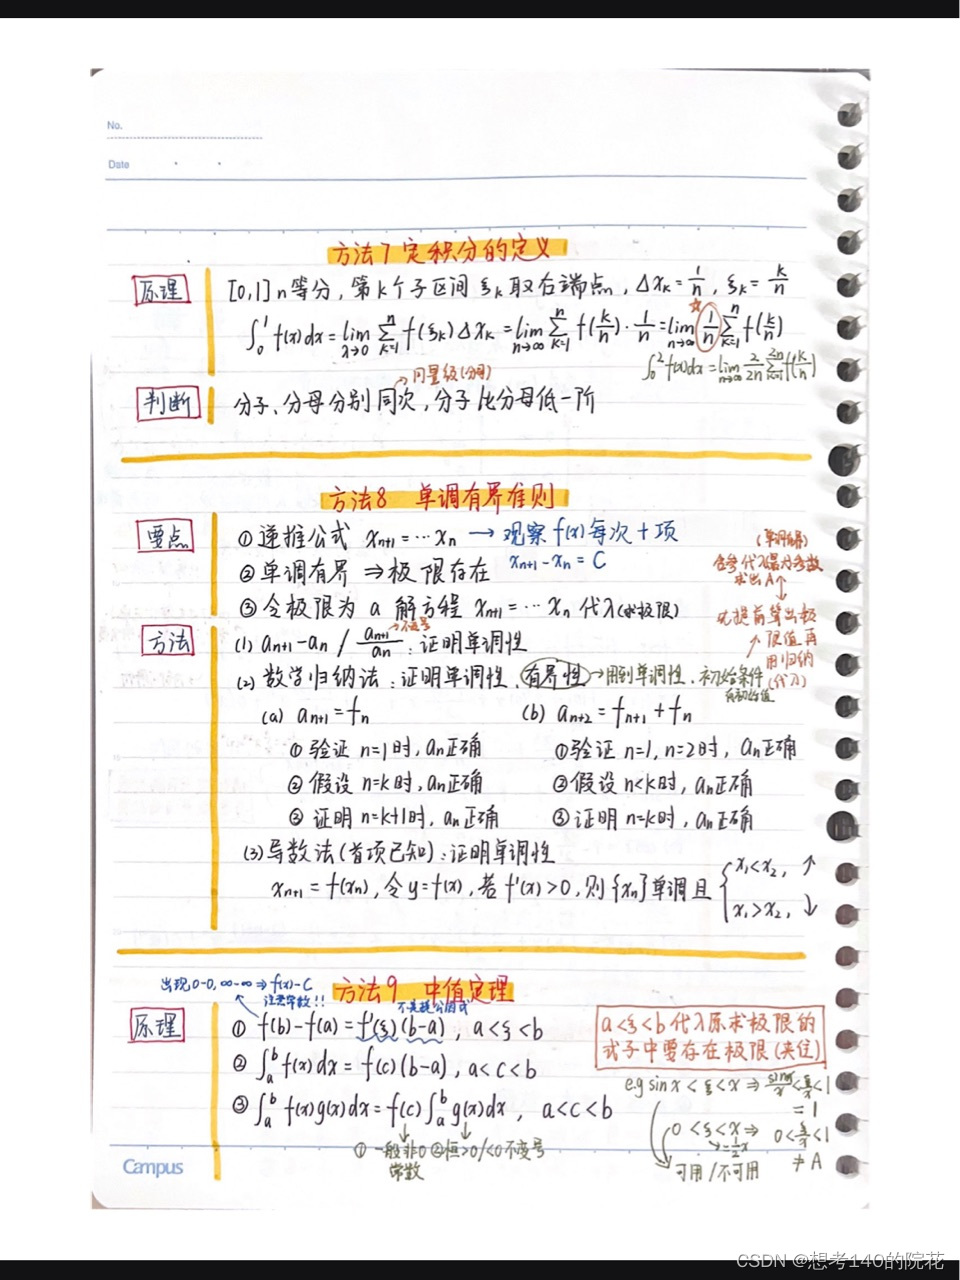 No.
Date
方法7 定积分的定义
原理 [0,1] n等分，第k个子区间 ξk取右端点，Δxk = 1/n，ξk = k/n
∫₀¹ f(x)dx = lim λ→0 Σ k=1 n f(ξk)Δxk = lim n→∞ Σ k=1 n f(k/n)·1/n = lim n→∞ 1/n Σ k=1 n f(k/n)
∫₀² f(x)dx = lim n→∞ 2/2n Σ k=1 2n f(k/n)
→同量级(分母)
判断 分子、分母分别同次，分子比分母低一阶
方法8 单调有界准则
要点 ①递推公式 xn+1 = ⋯ xn → 观察f(x)每次+项
xn+1 - xn = C
②单调有界 ⇒极限存在
③令极限为a 解方程 xn+1 = ⋯ xn 代入(求极限)
求出A
先提前算出极
限值再
用归纳
(代入)
方法 (1) an+1 - an / an+1/an：证明单调性
(2) 数学归纳法：证明单调性，有界性→用到单调性、初始条件
(a) an+1 = fn (b) an+2 = fn+1 + fn
①验证 n=1时，an正确 ①验证 n=1, n=2时，an正确
②假设 n=k时，an正确 ②假设 n<k时，an正确
③证明 n=k+1时，an正确 ③证明 n=k时，an正确
(3) 导数法(首项已知)：证明单调性
xn+1 = f(xn)，令y=f(x)，若f'(x)>0，则{xn}单调且 { x1<x2, ↑
x1>x2, ↓
出现0-0, ∞-∞ ⇒ f(x)-C
注意字数!!
方法9 中值定理
原理 ① f(b)-f(a) = f'(ξ)(b-a)，a<ξ<b
② ∫ₐᵇ f(x)dx = f(c)(b-a)，a<c<b
③ ∫ₐᵇ f(x)g(x)dx = f(c)∫ₐᵇ g(x)dx，a<c<b
①一般非0常数 ②恒>0/<0不变号
a<ξ<b代入原求极限的
式子中要存在极限(夹住)
e.g sinx<ξ<x ⇒ sinx/x<ξ/x<1
=1
0<ξ<x ⇒ 0<ξ/x<1
→=1/2x ≠A
可用/不可用
Campus
CSDN @想考140的院花